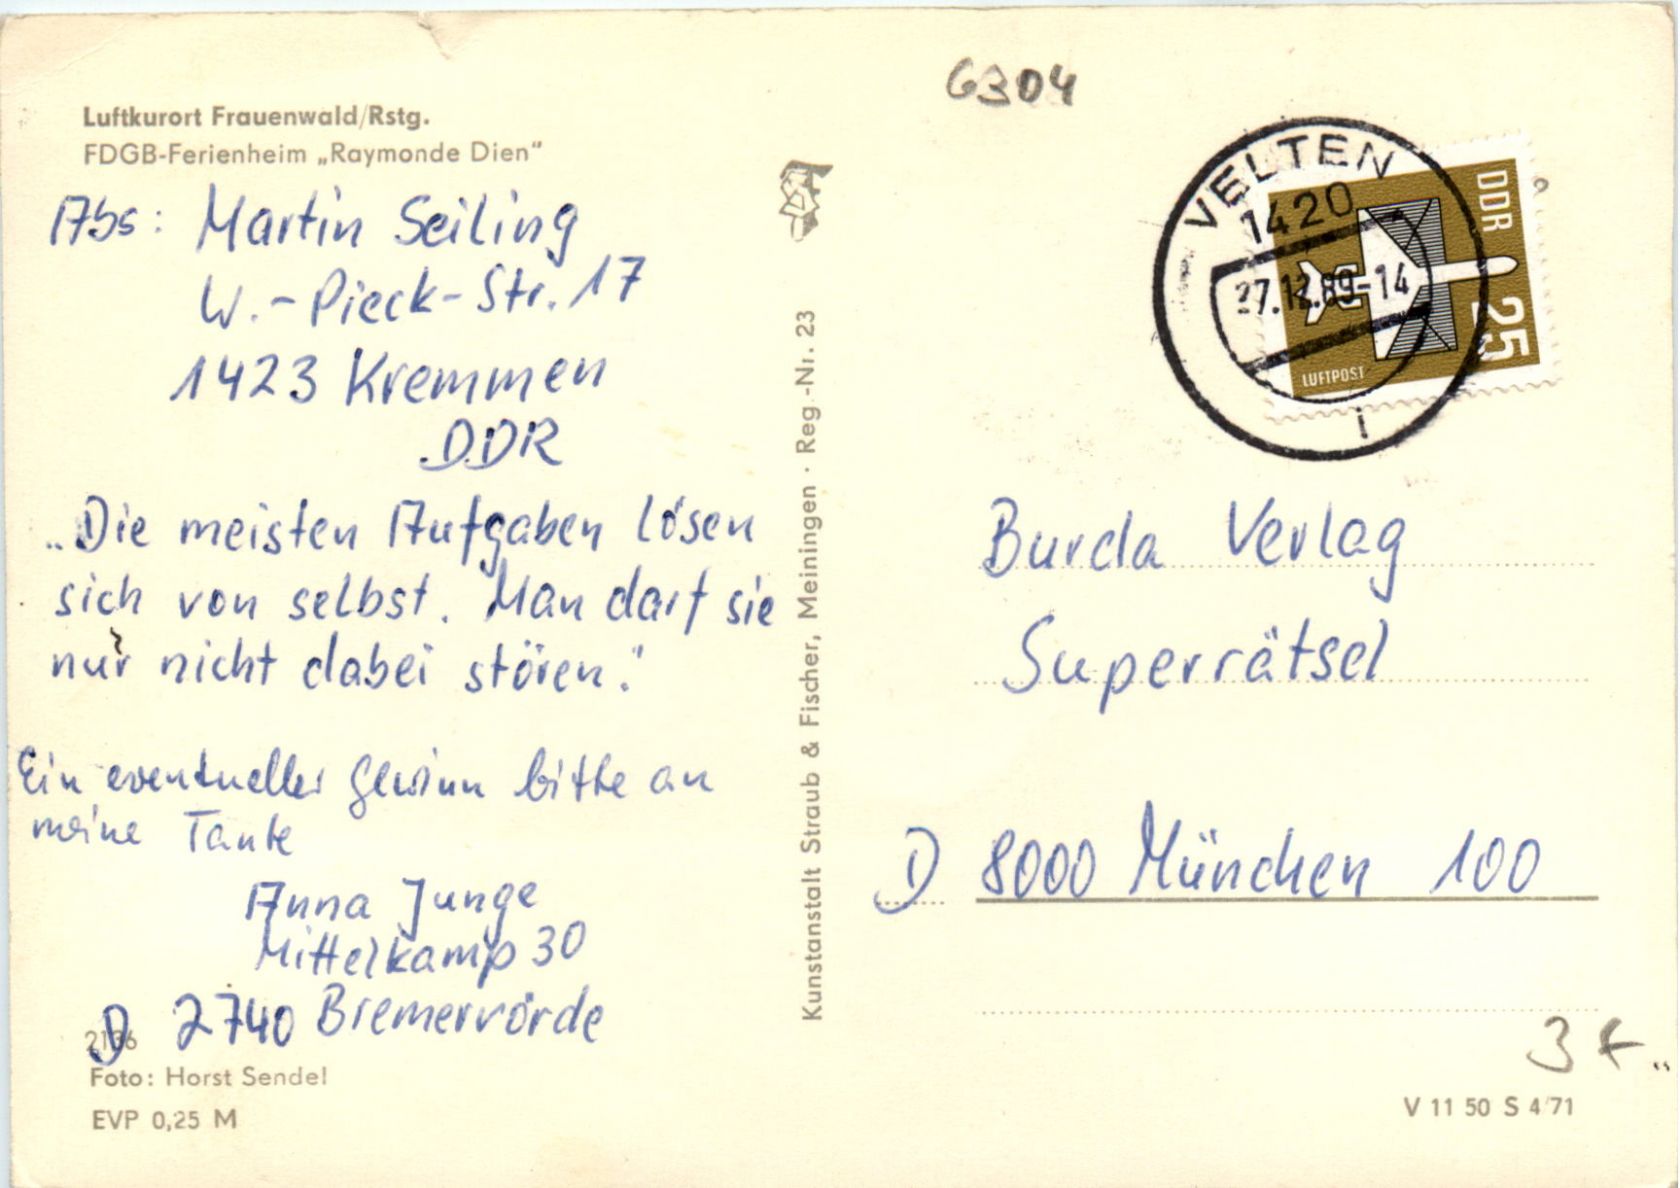 Luftkurort Frauenwald/Rstg.
FDGB-Ferienheim „Raymonde Dien"
Abs: Martin Seiling
W.-Pieck-Str. 17
1423 Kremmen
DDR
„Die meisten Aufgaben lösen
sich von selbst. Man darf sie
nur nicht dabei stören."
Ein eventueller Gewinn bitte an
meine Tante
Anna Junge
Mittelkamp 30
D 2740 Bremervörde
Foto: Horst Sendel
EVP 0,25 M
Kunstanstalt Straub & Fischer, Meiningen · Reg.-Nr. 23
6304
VELTEN
1420
27.12.89-14
i
DDR
25
LUFTPOST
Burda Verlag
Superrätsel
D 8000 München 100
3
V 11 50 S 4/71